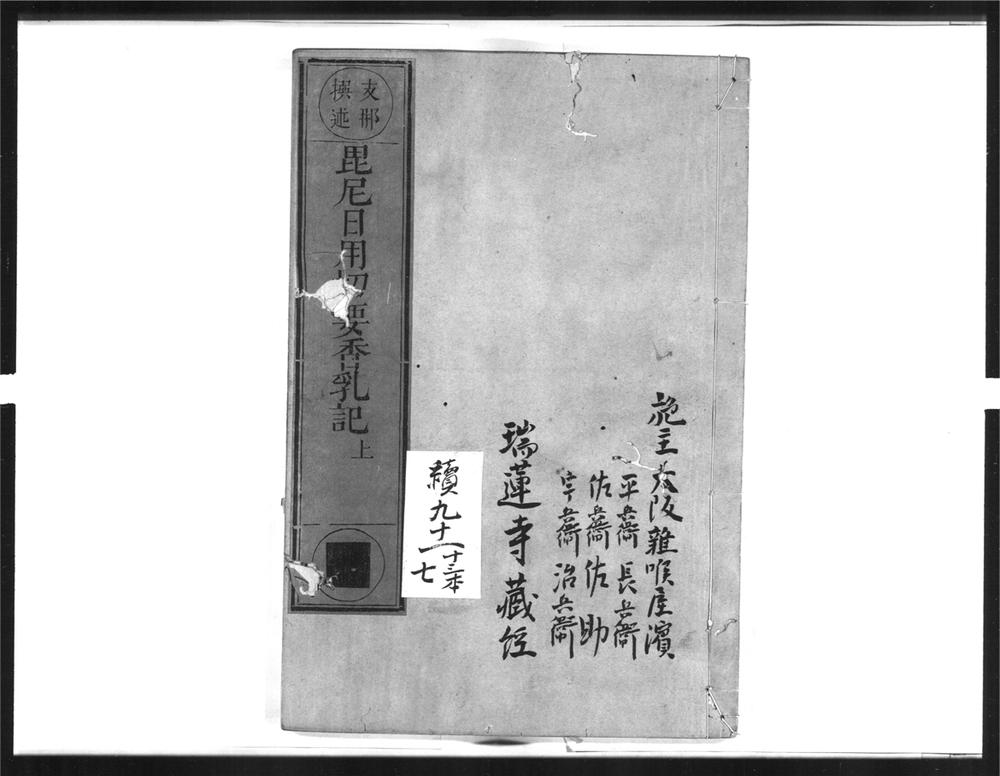 施主大阪雜喉屋濱
平兵衞 長兵衞
佐兵衞 佐助
宇兵衞 治兵衞
瑞蓮寺藏経
支那
撰述
毘尼日用切要香乳記 上
續九十一
七
十三本